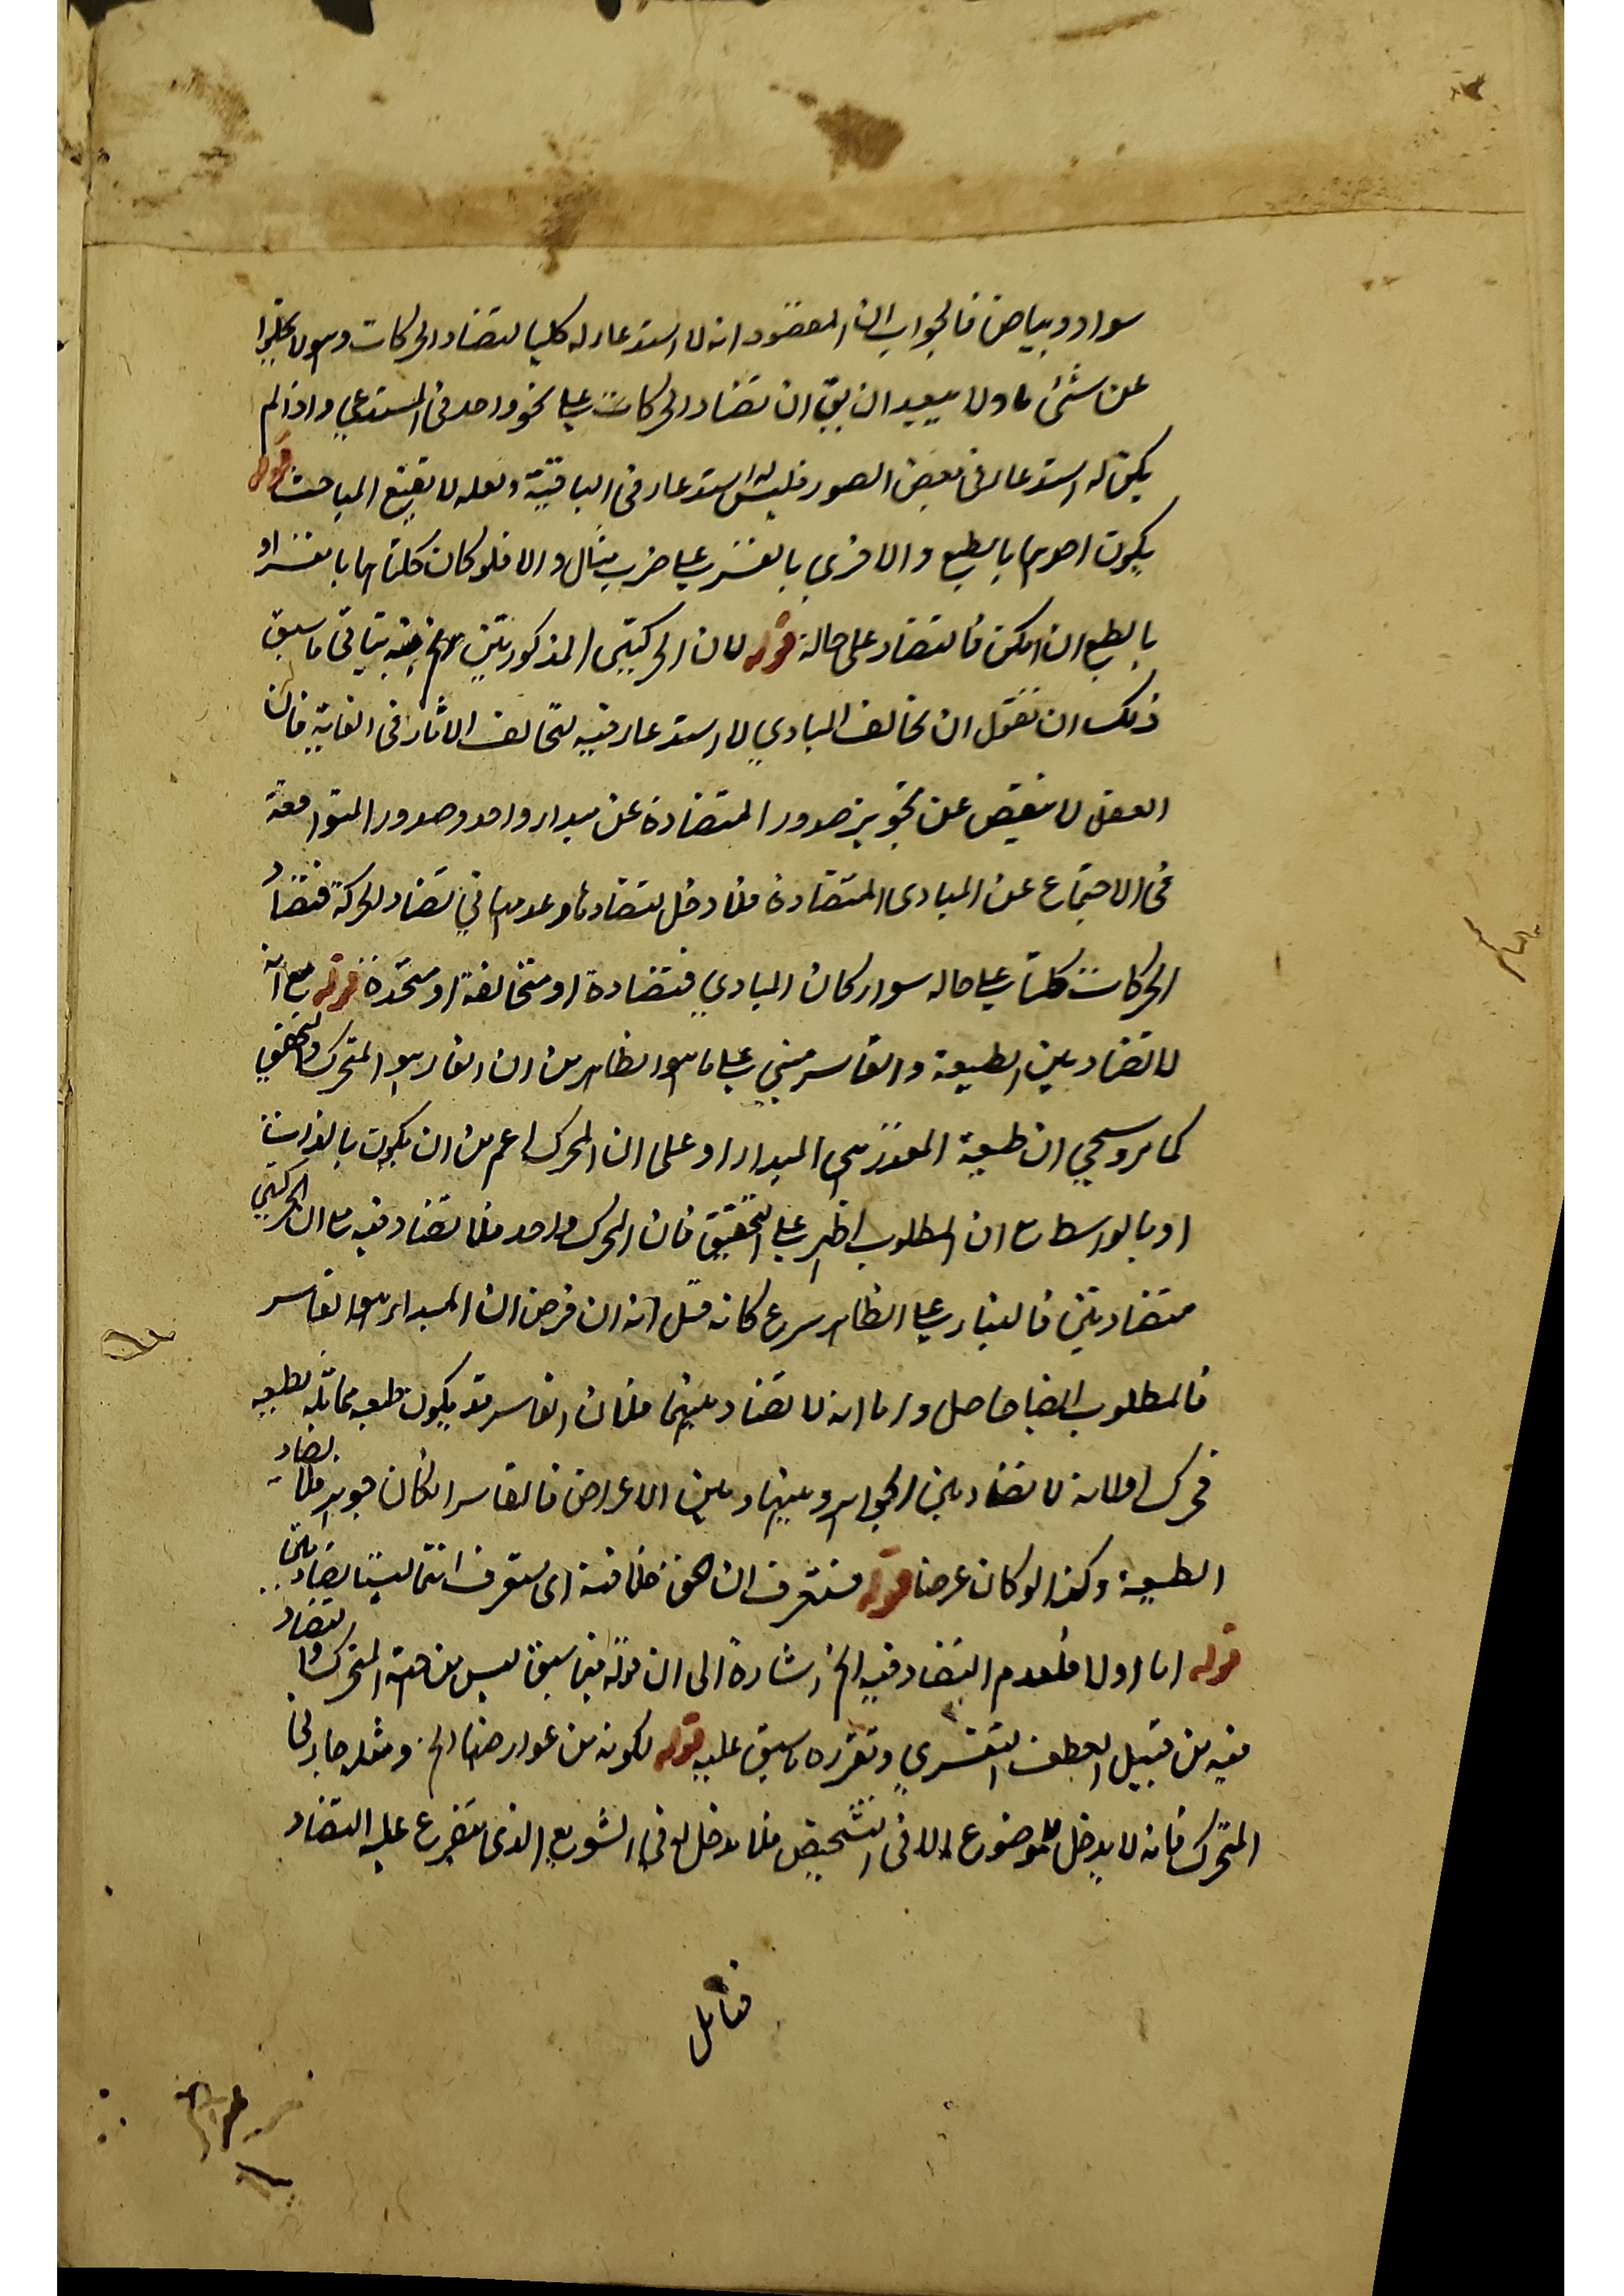 سواد وبياض فالجواب ان المقصود انه لا استدعاء له كليا لتضاد الحركات وهو لا يخلو
عن شئ ما ولا يبعد ان يق ان تضاد الحركات على نحو واحد فى المستدعي واذا لم
يكن له استدعاء فى بعض الصور فليس استدعاء فى الباقية ولعله لا يقنع المباحث قوله
يكون احدهما بالطبع والاخرى بالقسر على ضرب مثال والا فلو كان كلتاهما بالقسر او
بالطبع ان امكن فالتضاد على حاله قوله لان الحركتين المذكورتين الخ فيه يتأتى ما سبق
ذلك ان نقول ان تخالف المبادي لا استدعاء فيه لتخالف الاثار فى الغاية فان
العقل لا ينقبض عن تجويز صدور المتضادة عن مبدا واحد وصدور المتوافقة
فى الاجتماع عن المبادى المتضادة فلا دخل لتضادها وعدمها في تضاد الحركة فتضاد
الحركات كلها على حاله سواء كان المبادي متضادة او متخالفة او متحدة قوله مع انه
لا تضاد بين الطبيعة والقاسر مبني على ما هو الظاهر من ان القاسر هو المحرك والتحقيق
كما مر وسيجي ان طبيعة المقسور هي المبدا او على ان المحرك اعم من ان يكون بالذات
او بالواسطة مع ان المطلوب اظهر على التحقيق فان المحرك واحد فلا تضاد فيه مع ان الحركتين
متضادتين فالبناء على الظاهر سرع كانه قيل انه ان فرض ان المبداء هو القاسر
فالمطلوب ايضا حاصل واما انه لا تضاد بينهما فلان القاسر قد يكون طبعه مماثله لطبيعه
المحرك اولانه لا تضاد بين الجواهر وبينها وبين الاعراض فالقاسر ان كان جوهر فلا يضاد
الطبيعة وكذا لو كان عرضا قوله فستعرف ان الحق خلافه اى ستعرف انهما ليستا بضادين
قوله اما اولا فلعدم التضاد فيه الخ اشارة الى ان قوله فيما سبق ليس من جهة المتحرك والتضاد
فيه من قبيل العطف التفسيري وتقرره ما سبق عليه قوله لكونه من عوارضها الخ ومثله جار فى
المتحرك فانه لا يدخل للموضوع الا فى التشخيص فلا يدخل له فى التنويع الذى يتفرع عليه التضاد
فتأمل